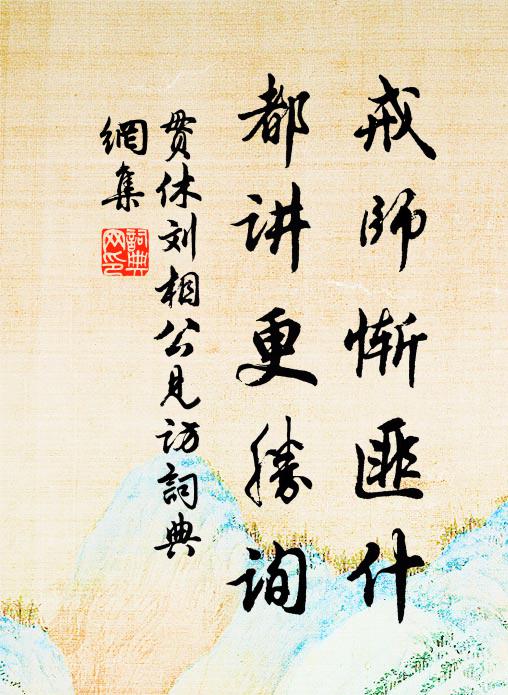 戒师惭匪什
都讲更勝询
贯休刘相公见访詞典
網集
詞典
网印